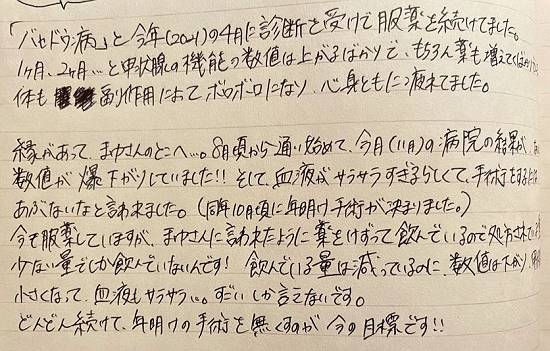 「バセドウ病」と今年(2021)の4月に診断を受けて服薬を続けてました。
1ヶ月、2ヶ月…と甲状腺の機能の数値は上がるばかりで、もちろん薬も増えてくばかり
体も 副作用によってボロボロになり、心身ともに疲れてました。
縁があって、まゆさんのとこへ…。8月頃から通い始めて、今月(11月)の病院の結果が、
数値が爆下がりしていました!! そして、血液がサラサラすぎるらしくて、手術をするには
あぶないなと言われました。(同年10月頃に年明け手術が決まりました。)
今も服薬していますが、まゆさんに言われたように薬をけずって飲んでいるので処方されている
少ない量でしか飲んでいないんです! 飲んでいる量は減っているのに、数値は下がり、
小さくなって、血液もサラサラ…。すごいしか言えないです。
どんどん続けて、年明けの手術を無くすのが今の目標です!!